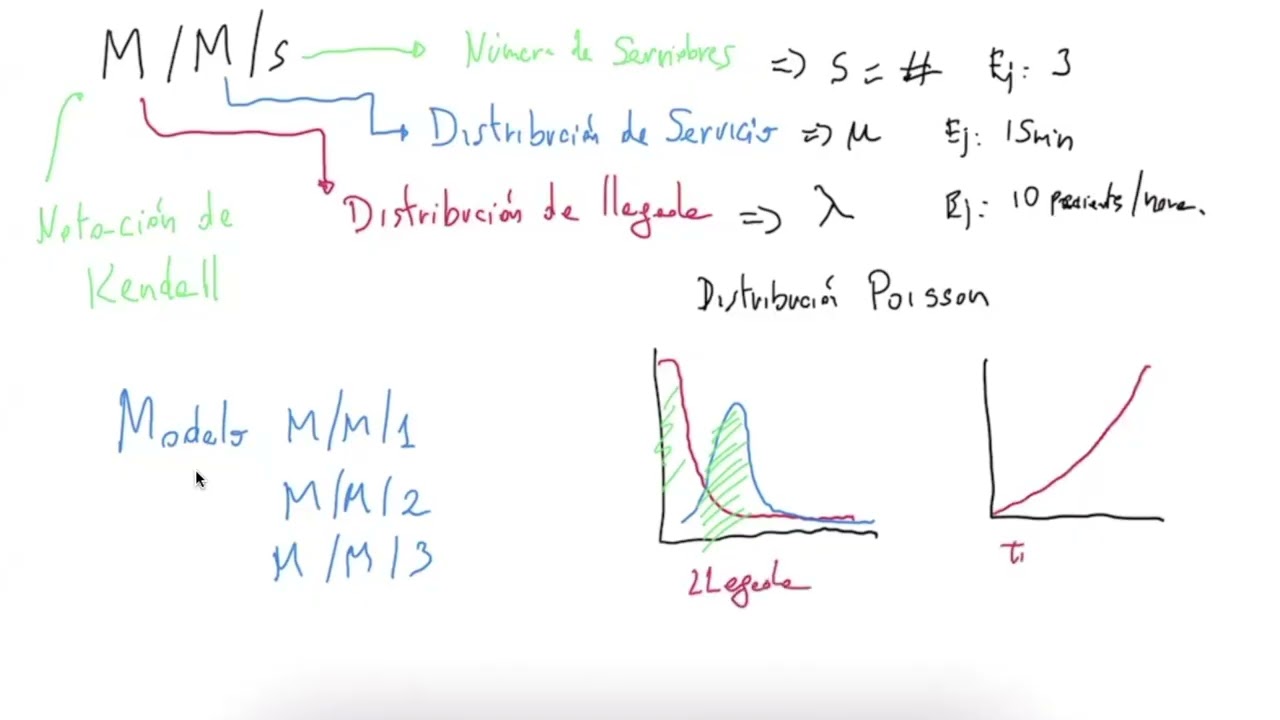 M/M/s Número de Servidores => S = # Ej: 3
Distribución de Servicio => μ Ej: 15min
Distribución de llegada => λ Ej: 10 /hora.
Notación de
Kendall
Distribución Poisson
Modelo M/M/1
M/M/2
M/M/3
LLegada